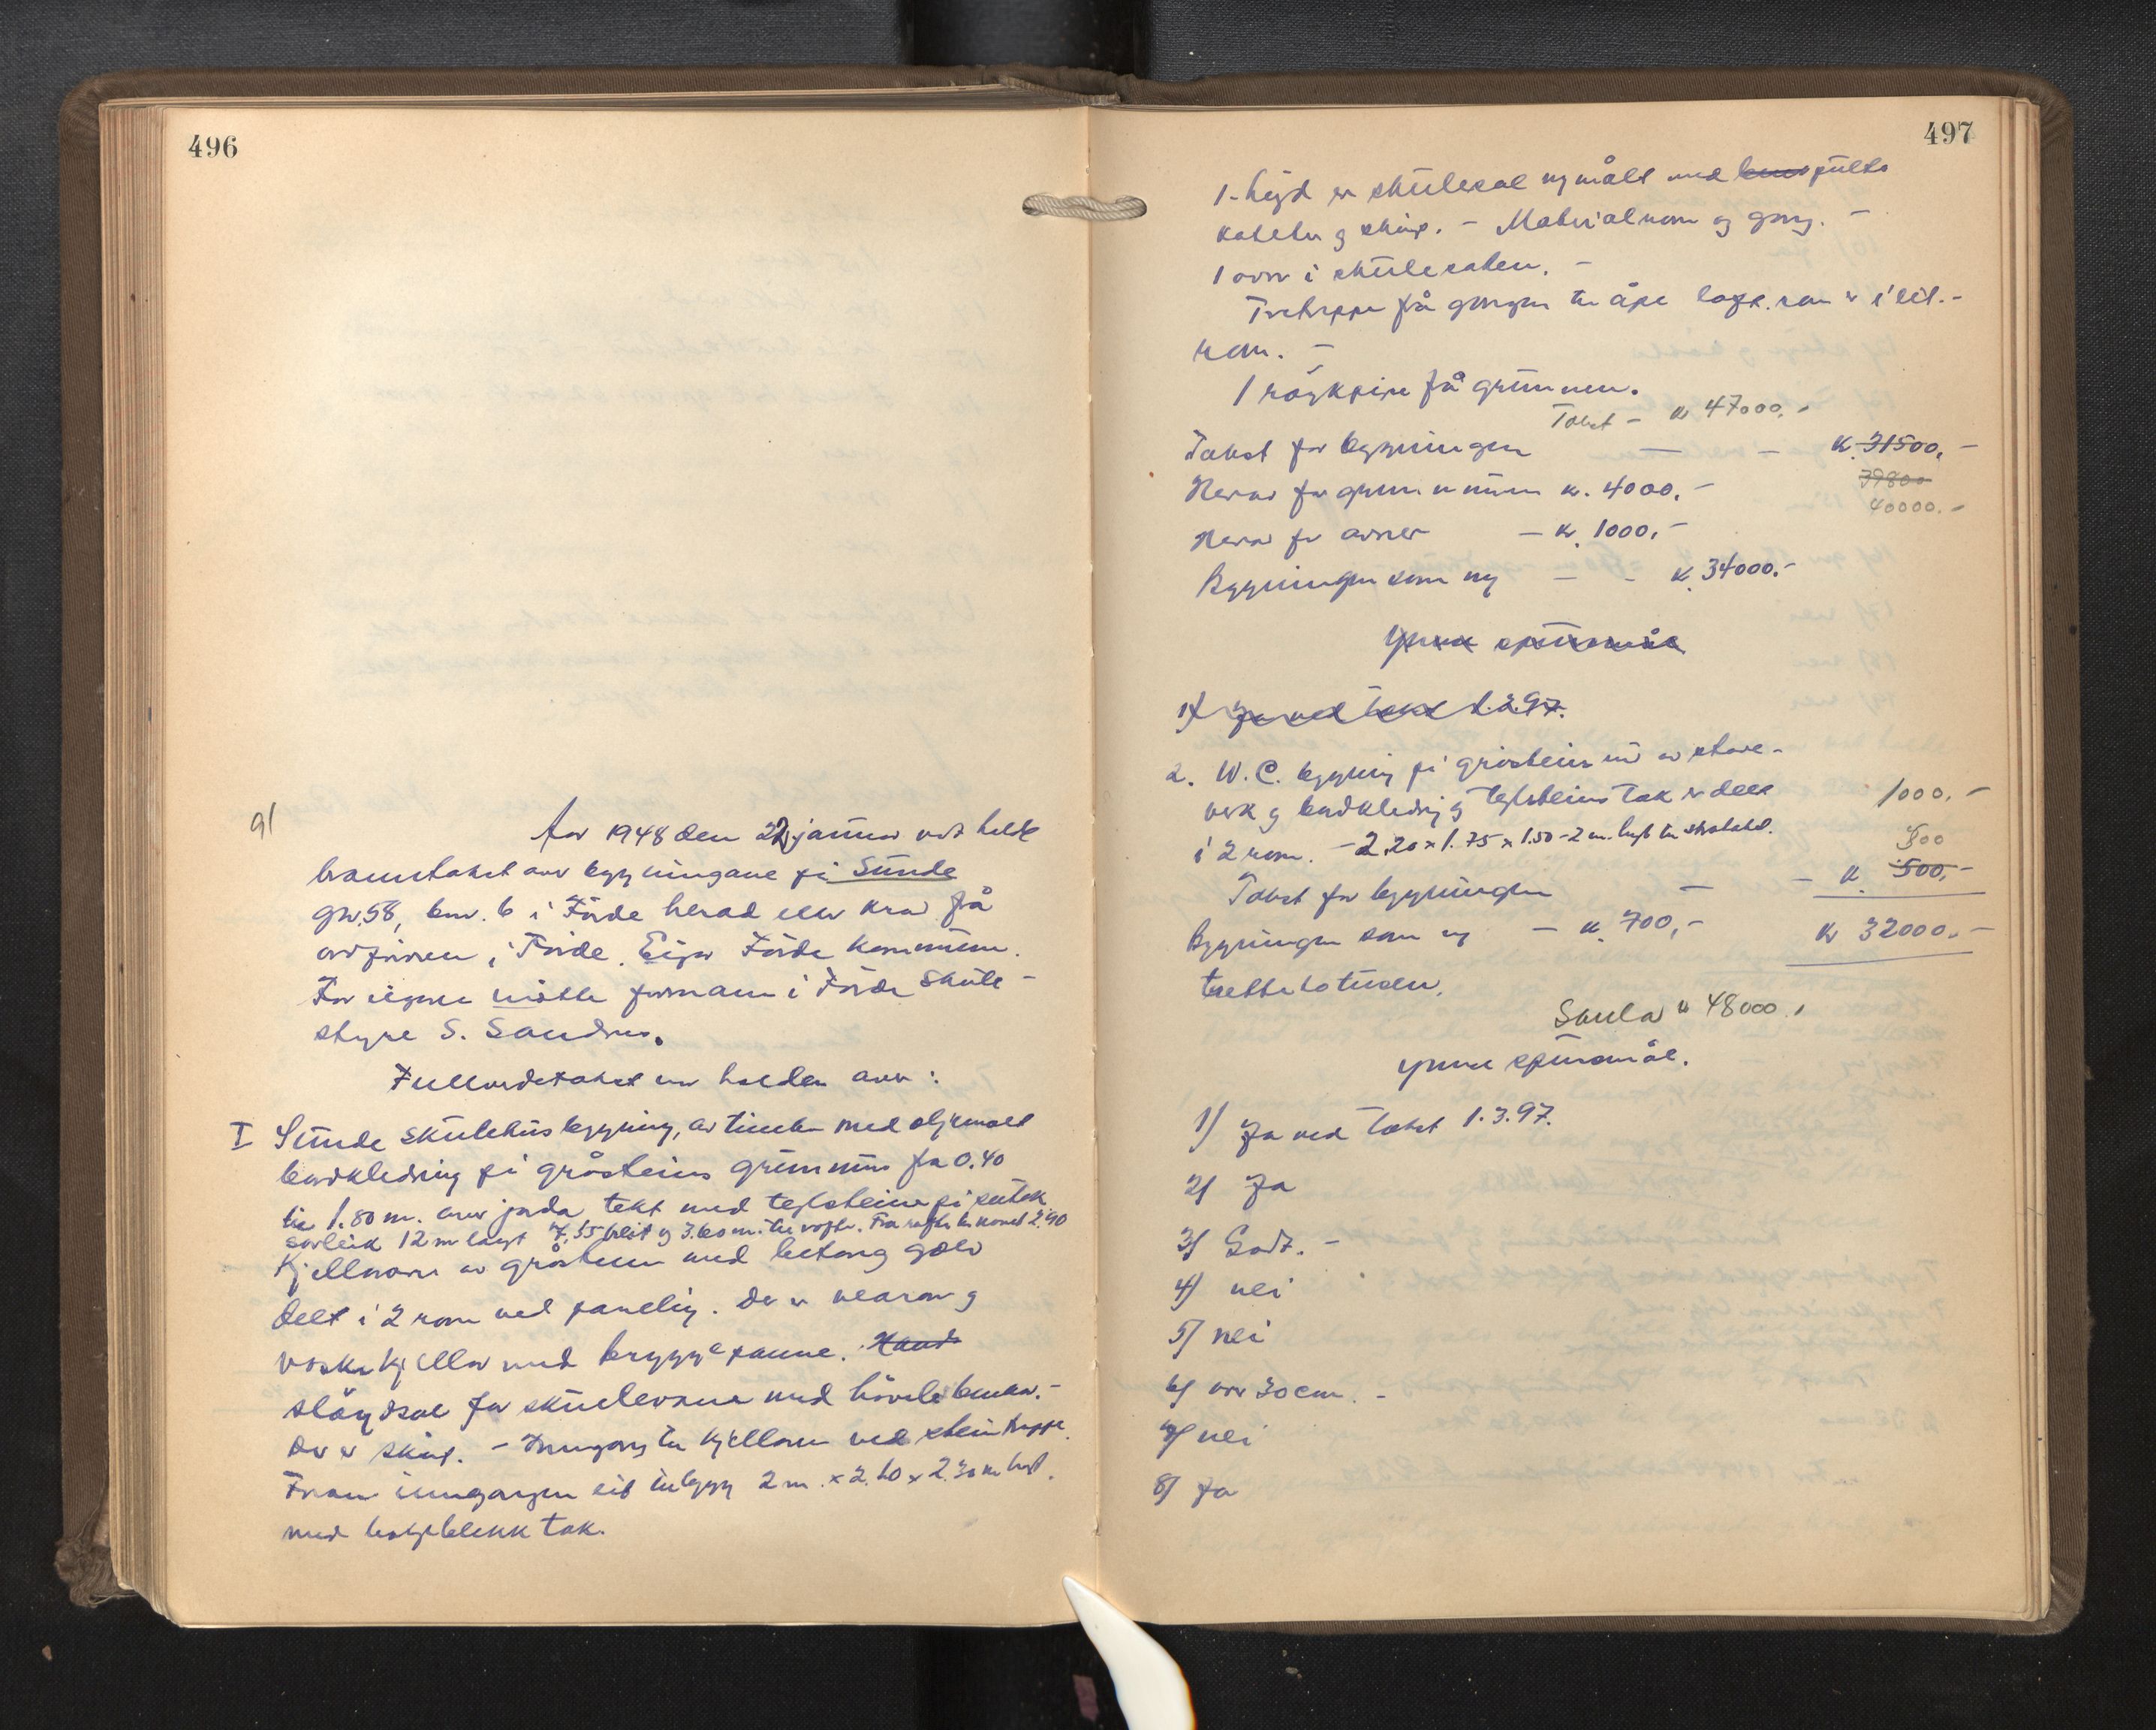 496
91
Aar 1948 den 22 januar vart halde
branntakst over bygningane på Sunde
gnr. 58, bnr. 6 i Förde herad etter krav frå
ordf i Förde. Eigar Förde kommune.
For eigaren mötte formann i Förde skule-
styre S. Sandnes.
Fullverdetakst vert halden over:
I Sunde skulehusbygning, av timber med oljemalt
bordkledning på gråsteins grunnmur fra 0.40
til 1.80 m. over jorda tekt med teglsteine på sutak
12 m langt 7.55 breit og 3.60 m. til röste. Fra röste til 2.90
Kjellarrom av gråstein med betong golv
delt i 2 rom ved paneling. Der er vearom og
vaskekjellar med bryggepanne. Hand
slöydsal for skulelevane med hövelbenker. -
Der er skåp. - Inngang til kjellaren ved steintrappe.
Fram inngangen eit tilbygg 2 m. x 2.10 x 2.30 m högt.
med bölgeblekk tak.
497
1. högd er skulesal nymålt med pulter
kateter og skåp. - Materialrom og gang. -
1 omn i skulesalen. -
Tretrappe frå gangen til åpe loft. som er i eit. -
rom. -
1 röykpipe frå grunnen.
Takst - kr 47000. -
Takst for bygningen - - kr. 31500, -
39800
Herav for grunnmuren kr. 4000. -
40000. -
Herav for omner - kr. 1000. -
Bygningen som ny - - kr. 34000. -
Ymse spursmål
1) Ja ved takst 1.3.97.
2. W.C. bygning på gråsteins mur av stave-
verk og bordkledning og teglsteins tak er delt
1000. -
i 2 rom. - 2.20 x 1.75 x 1.50 - 2 m. högt til
800
Takst for bygningen - - kr. 500, -
Bygningen som ny - kr. 700, -
kr 32000. -
trettitotusen.
Samla kr 48000. -
Ymse spursmål.
1) Ja ved takst 1.3.97.
2) Ja
3) Godt. -
4) nei
5) nei
6) over 30 cm. -
7) nei
8) Ja